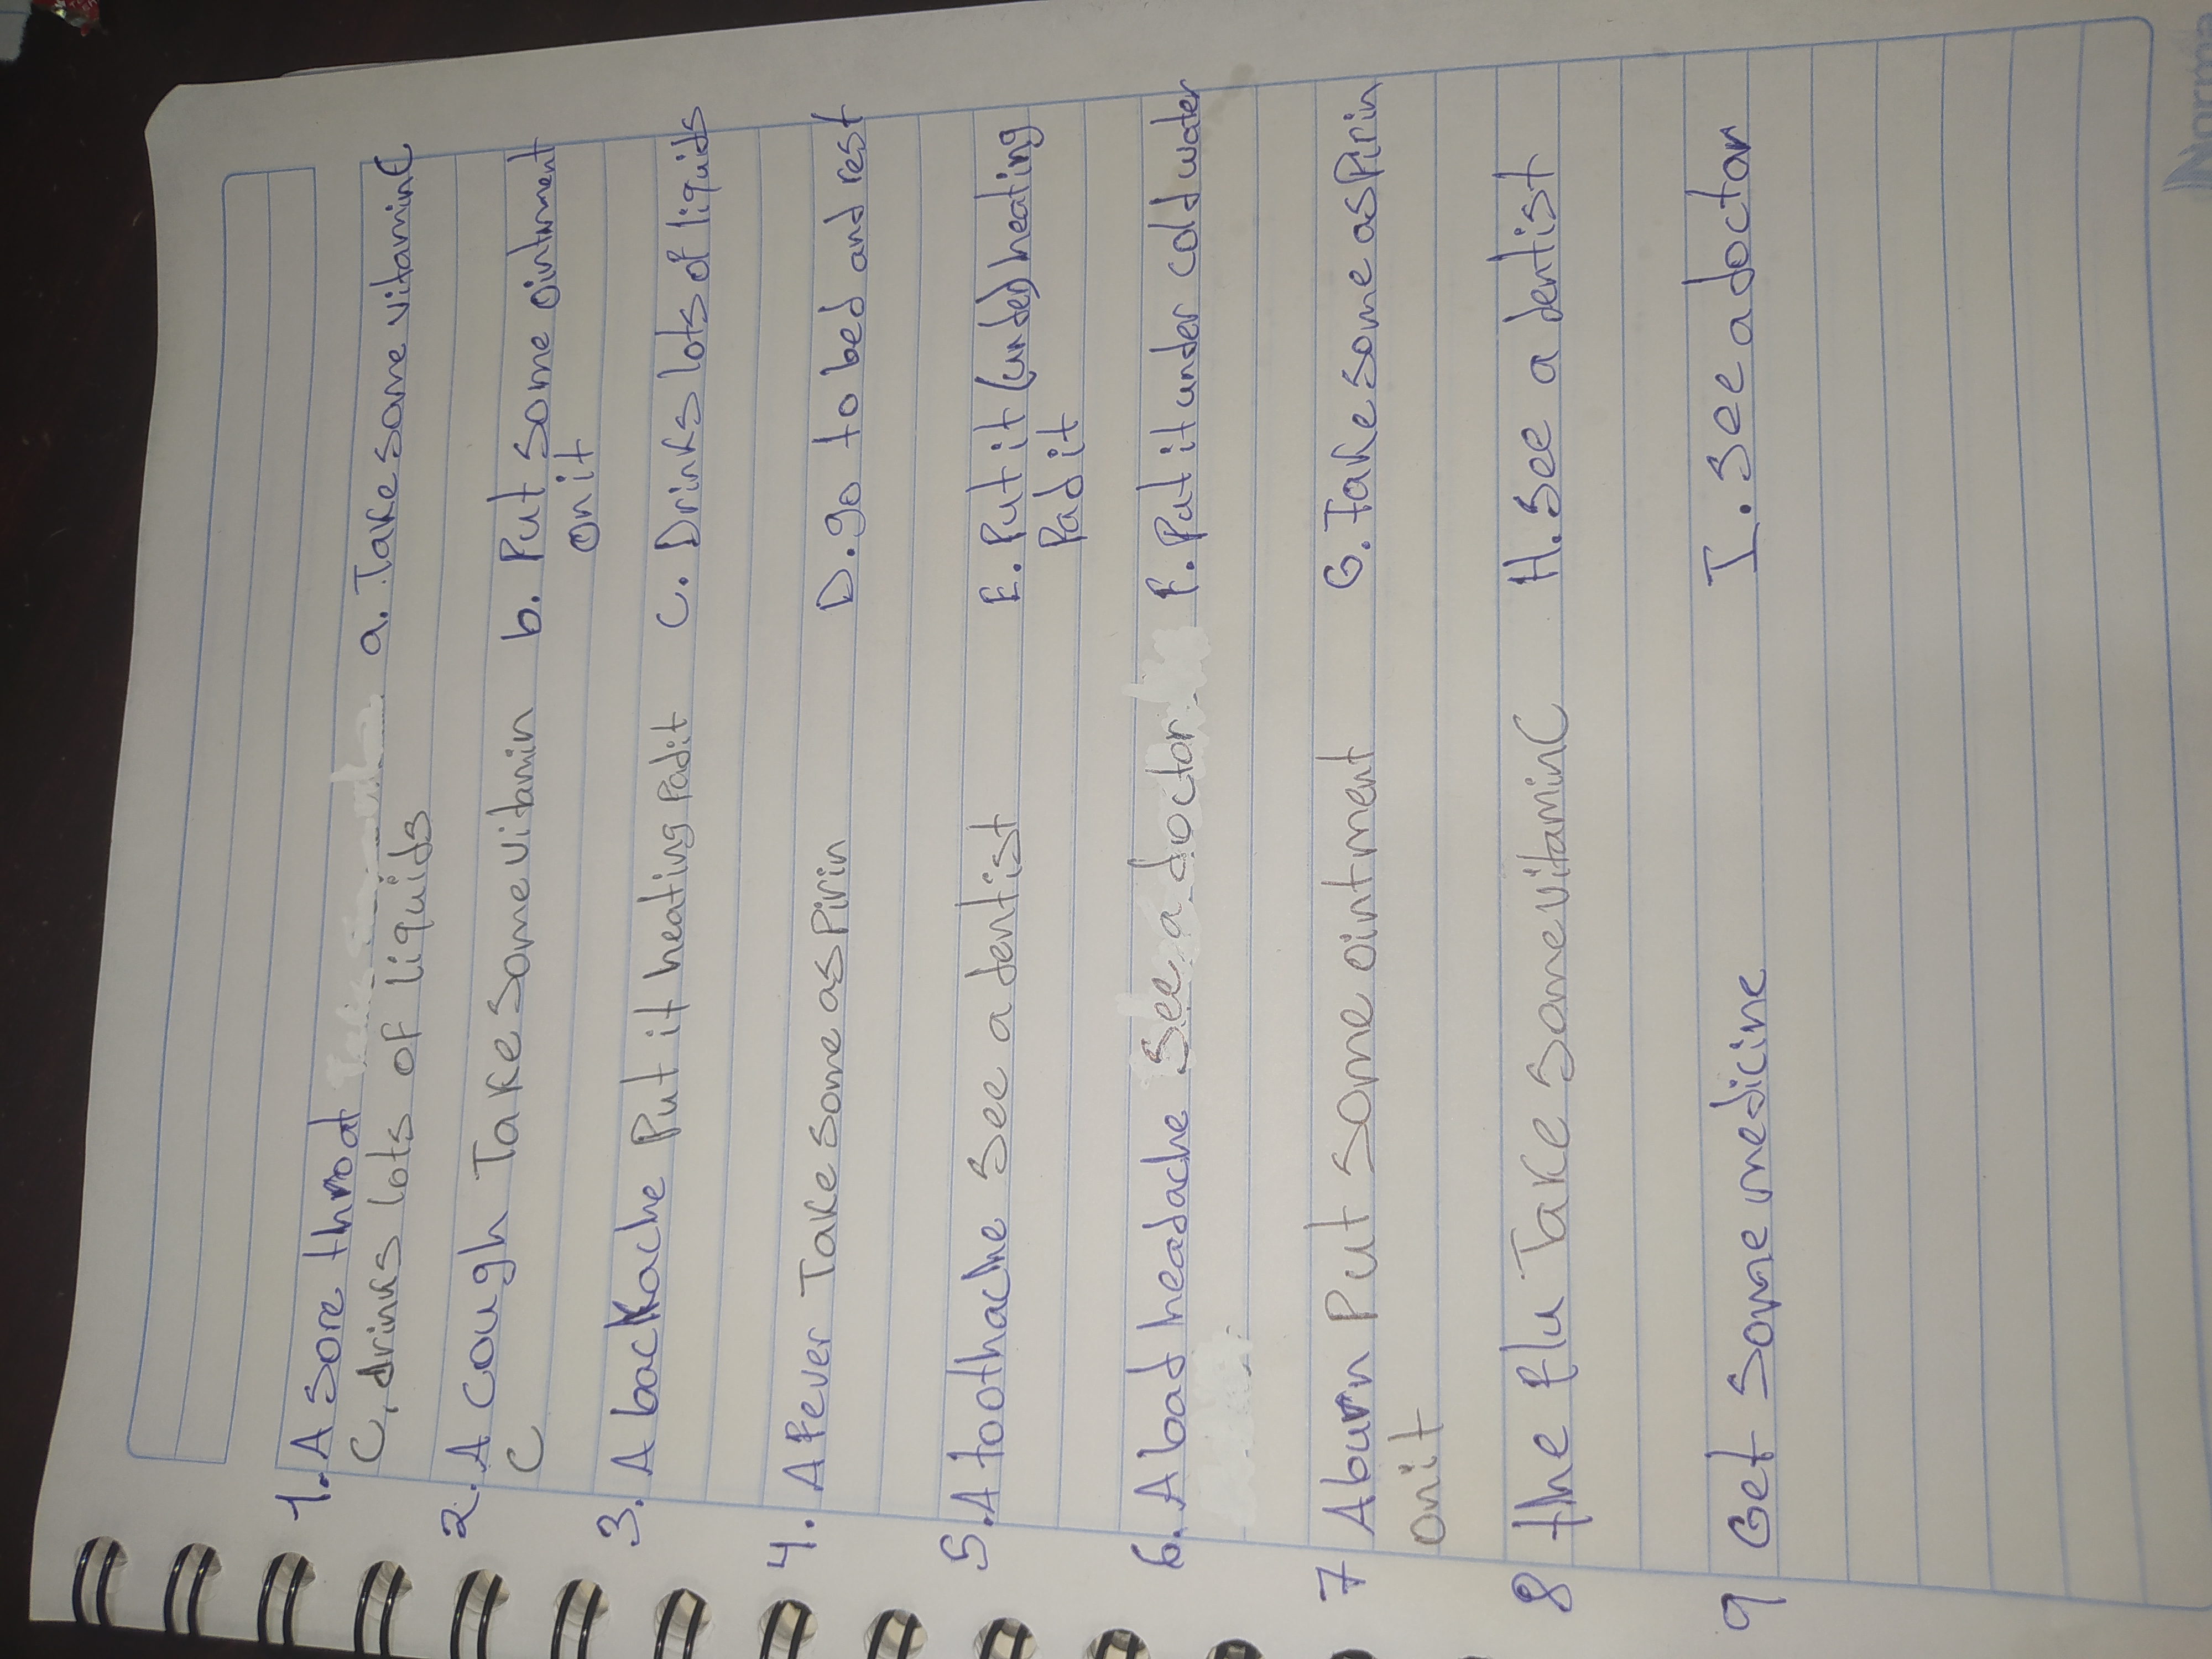 1. A sore throat a. Take some vitamin C
C, drinks lots of liquids
2. A cough Take some vitamin b. Put some ointment
C on it
3. A backache Put it heating Padit c. Drinks lots of liquids
4. A fever Take some asPirin D. go to bed and rest
5. A toothache see a dentist E. Put it (under) heating
Pad it
6. A bad headache see a doctor F. Put it under cold water
7 A burn Put some ointment G. Take some asPirin
on it
8 the flu Take some vitamin C H. See a dentist
9 Get some medicine I. see a doctor
Norma